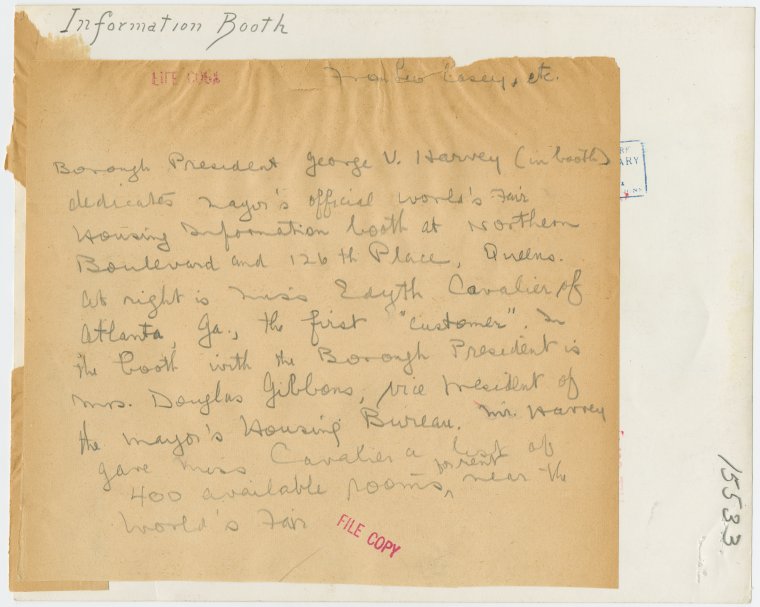 Information Booth
FILE COPY
From Leo Casey, etc.
Borough President George V. Harvey (in booth)
dedicates Mayor's official World's Fair
Housing Information booth at Northern
Boulevard and 126th Place, Queens.
At right is Miss Edyth Cavalier of
Atlanta, Ga., the first "customer". In
the booth with the Borough President is
Mrs. Douglas Gibbons, vice President of
the Mayor's Housing Bureau. Mr. Harvey
gave Miss Cavalier a list of
400 available rooms, for rent near the
World's Fair
FILE COPY
15533